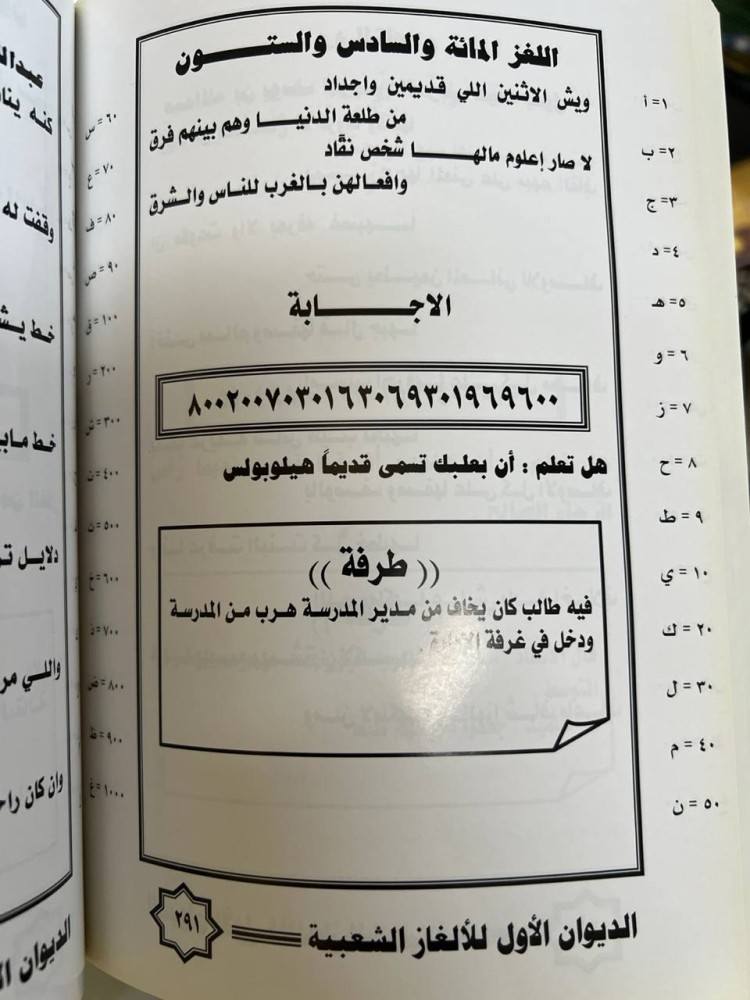 اللغز المائة والسادس والستون
ويش الاثنين اللي قديمين واجداد
من طلعة الدنيا وهم بينهم فرق
لا صار إعلوم مالها شخص نقَّاد
وافعالهن بالغرب للناس والشرق
الاجابة
٨٠٠٢٠٠٧٠٣٠١٦٣٠٦٩٣٠١٩٦٩٦٠٠
هل تعلم : أن بعلبك تسمى قديماً هيلوبولس
(( طرفة ))
فيه طالب كان يخاف من مدير المدرسة هرب من المدرسة
ودخل في غرفة الإدارة.
الديوان الأول للألغاز الشعبية
٢٩١
١=أ
٢=ب
٣=ج
٤=د
٥=هـ
٦=و
٧=ز
٨=ح
٩=ط
١٠=ي
٢٠=ك
٣٠=ل
٤٠=م
٥٠=ن
٦٠=س
٧٠=ع
٨٠=ف
٩٠=ص
١٠٠=ق
٢٠٠=ر
٣٠٠=ش
٤٠٠=ت
٥٠٠=ث
٦٠٠=خ
٧٠٠=ذ
٨٠٠=ض
٩٠٠=ظ
١٠٠٠=غ
كنه
وقفت له
خط
خط
دلايل
واللي
وان كان
الديوان